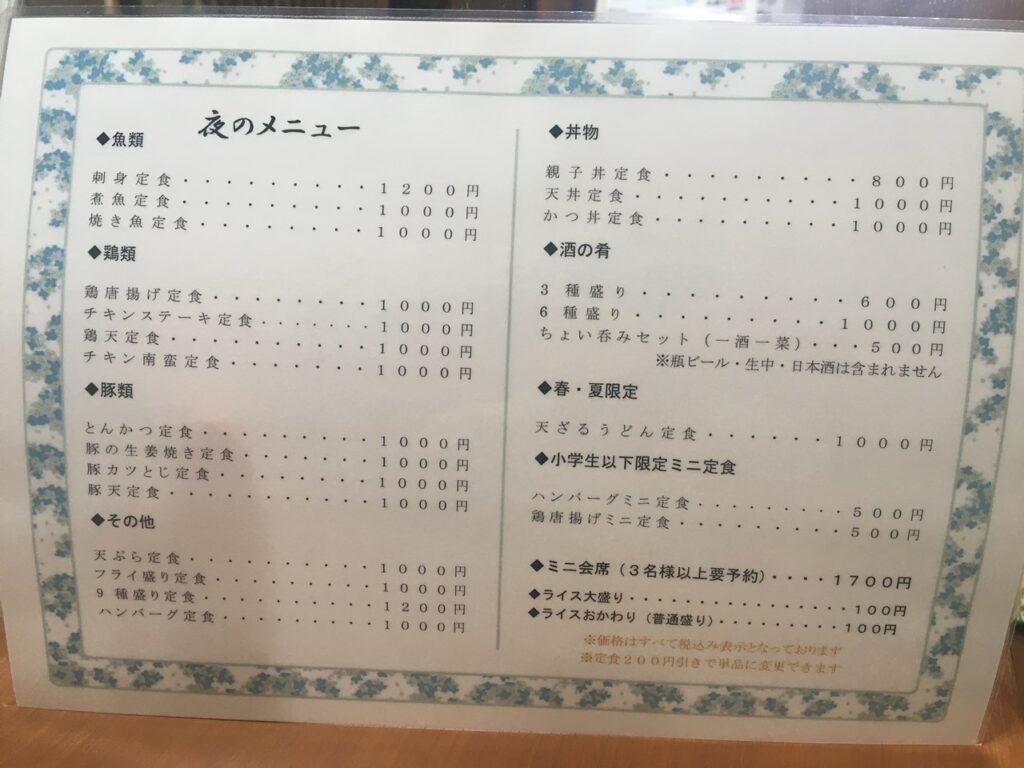 夜のメニュー
◆魚類
刺身定食・・・・・・・・・１２００円
煮魚定食・・・・・・・・・１０００円
焼き魚定食・・・・・・・・１０００円
◆鶏類
鶏唐揚げ定食・・・・・・・１０００円
チキンステーキ定食・・・・・・・１０００円
鶏天定食・・・・・・・・・１０００円
チキン南蛮定食・・・・・・１０００円
◆豚類
とんかつ定食・・・・・・・・１０００円
豚の生姜焼き定食・・・・・・１０００円
豚カツとじ定食・・・・・・・１０００円
豚天定食・・・・・・・・・１０００円
◆その他
天ぷら定食・・・・・・・・１０００円
フライ盛り定食・・・・・・・１０００円
９種盛り定食・・・・・・・１２００円
ハンバーグ定食・・・・・・１０００円
◆丼物
親子丼定食・・・・・・・・・８００円
天丼定食・・・・・・・・・１０００円
かつ丼定食・・・・・・・・１０００円
◆酒の肴
３種盛り・・・・・・・・・６００円
６種盛り・・・・・・・・・１０００円
ちょい呑みセット（一酒一菜）・・・５００円
※瓶ビール・生中・日本酒は含まれません
◆春・夏限定
天ざるうどん定食・・・・・・１０００円
◆小学生以下限定ミニ定食
ハンバーグミニ定食・・・・・・・・・５００円
鶏唐揚げミニ定食・・・・・・・・・・５００円
◆ミニ会席（３名様以上要予約）・・・・１７００円
◆ライス大盛り・・・・・・・・・・・・・・・・１００円
◆ライスおかわり（普通盛り）・・・・・・・・・１００円
※価格はすべて税込み表示となっております
※定食２００円引きで単品に変更できます